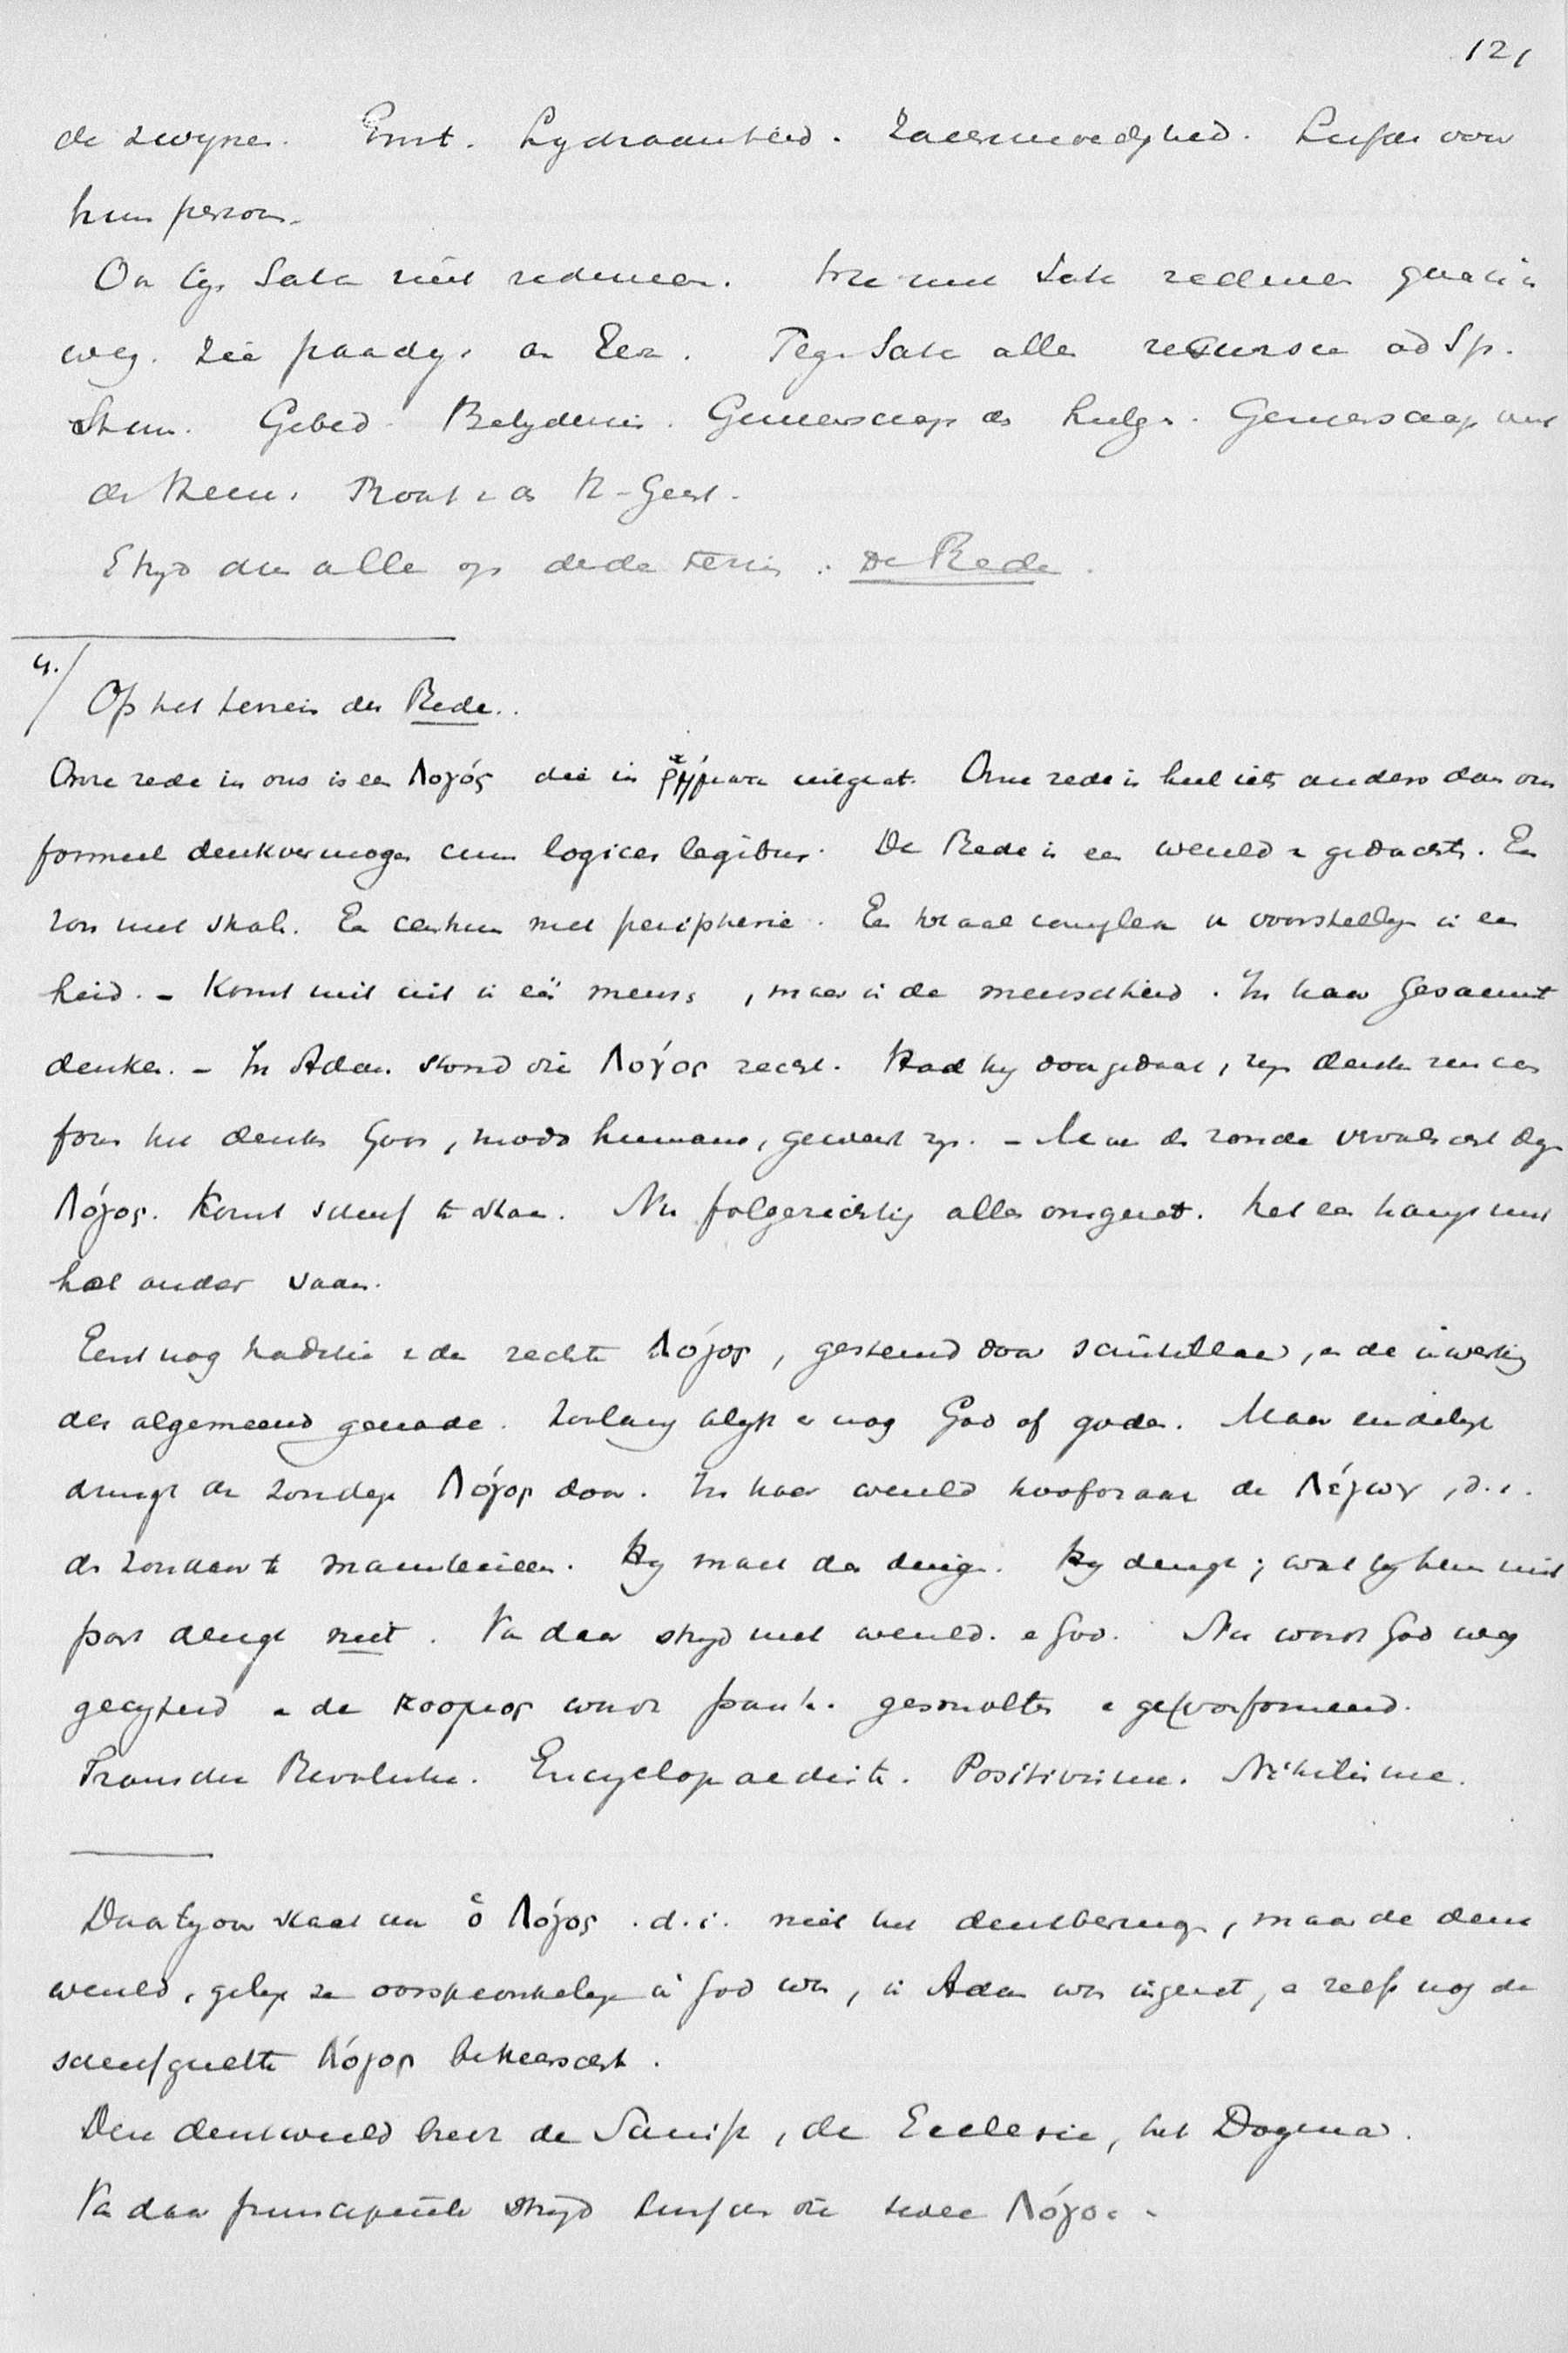 121
de zwynen. Ernst. Lydzaamheid. Zachtmoedigheid. Liefde voor
hun persoon.
On tegen Satan niet redeneeren. Wie met Satan redeneert gaat
weg. Zie paradijs en Eva. Tegen Satan alle ad Sp.
Stum. Gebed. Belydenis. Gemeenschap der heilgn. Gemeenschap met
den Heere. Troost v. d. H. Geest.
Stryd dus alleen op derde terrein: De Rede.
4./ Op het terrein der Rede..
Onze rede in ons is een Λογός die in ῥήματα uitgaat. Onze rede is heel iets anders dan ons
formeel denkvermogen cum logices legibus. De Rede is een wereld v gedachten. Een
zon met stralen. Een centrum met peripherie. Een totaal complex v voorstellingen in een
heid. - Komt niet uit in één mensch, maar in de menschheid. In haar Gesammt
denken. - In Adam stond die Λογός recht. Had hy doorgedacht, zyn denken zou een
form het denken Gods, modo humano, geweest zyn. - Maar de zonde vervalscht dezen
Λόγος. Komt scheef te staan. Nu folgerichtig alles omgezet. Het een hangt met
het ander saam.
Eerst nog traditie v de rechte Λόγος, gesteund door scintillae, en de inwerking
der algemeene genade. Zoolang blyft er nog God of goden. Maar eindelyk
dringt de zondige Λόγος door. In haar wereld hoofdzaak de Λέγων, d.i.
de zondaar te maintenieeren. Hy maakt de dingen. Hy denkt; wat by hem niet
past denkt niet. Van daar stryd met wereld en God. Nu wordt God weg
gecyferd en de κοσμος wordt panth. gesmolten en getransformeerd.
Fransche Revolutie. Encyclopaedisten. Positivisme. Nihilisme.
Daartegenover staat nu ὁ Λόγος .d.i. niet het denkvermogen, maar de denk
wereld, gelyk ze oorspronkelyk in God was, in Adam was ingezet, en zelfs nog de
scheefgezette Λόγος beheerscht.
Deze denkwereld heeft de Schrift, de Ecclesie, het Dogma.
Van daar principieele stryd tusschen die twee Λόγοι.